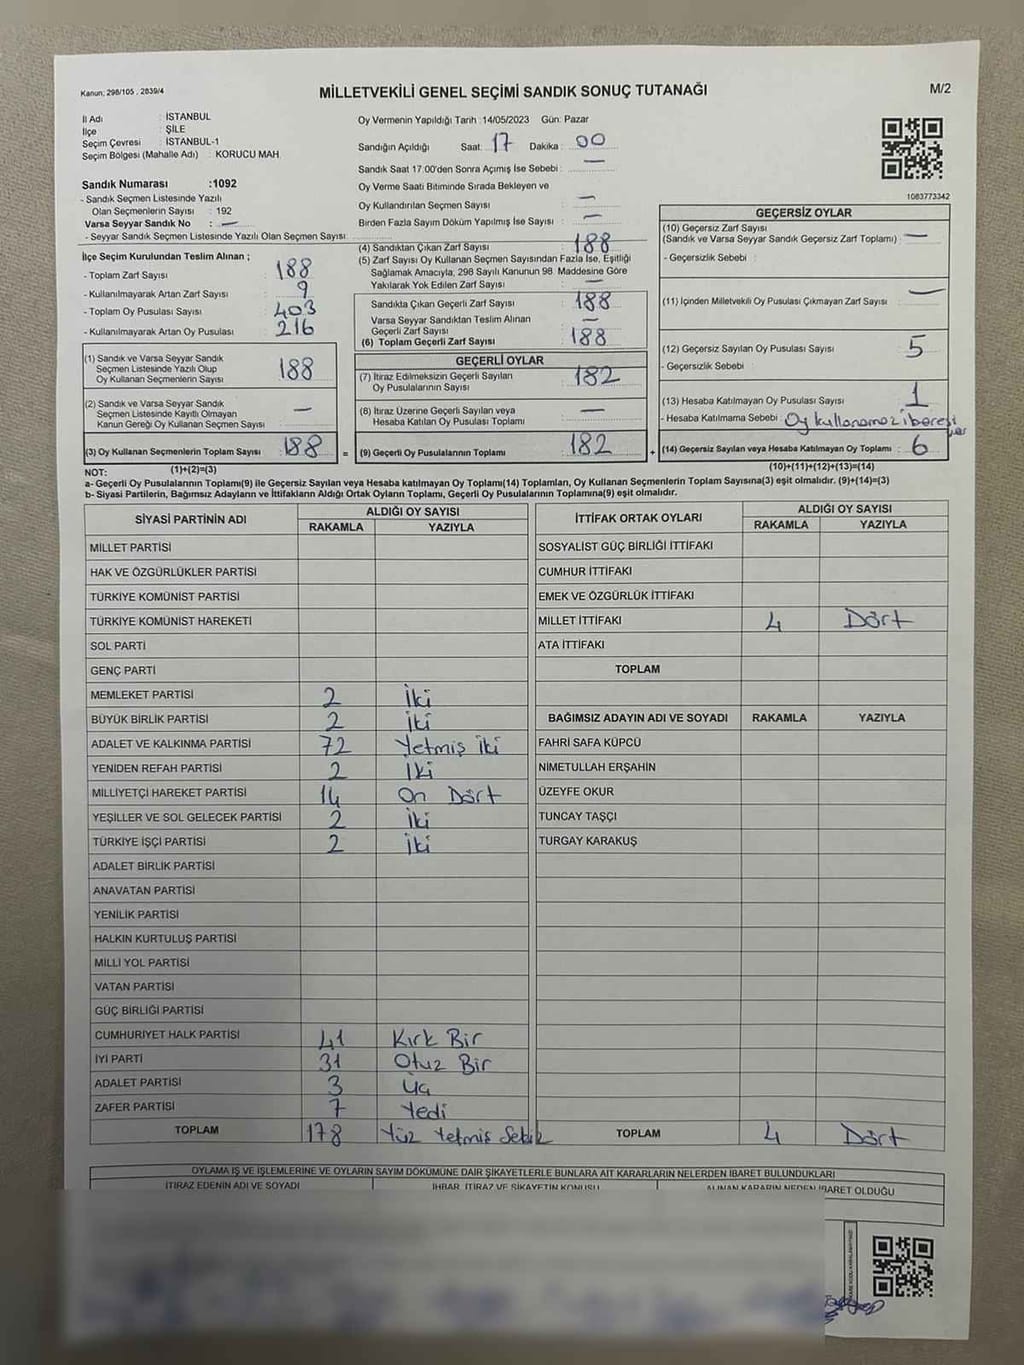 Kanun: 298/105 , 2839/4
MİLLETVEKİLİ GENEL SEÇİMİ SANDIK SONUÇ TUTANAĞI
M/2
İl Adı : İSTANBUL
İlçe : ŞİLE
Seçim Çevresi : İSTANBUL-1
Seçim Bölgesi (Mahalle Adı) : KORUCU MAH
Sandık Numarası :1092
- Sandık Seçmen Listesinde Yazılı
Olan Seçmenlerin Sayısı : 192
Varsa Seyyar Sandık No : —
- Seyyar Sandık Seçmen Listesinde Yazılı Olan Seçmen Sayısı
İlçe Seçim Kurulundan Teslim Alınan ;
- Toplam Zarf Sayısı : 188
- Kullanılmayarak Artan Zarf Sayısı : 9
- Toplam Oy Pusulası Sayısı : 403
- Kullanılmayarak Artan Oy Pusulası : 216
(1) Sandık ve Varsa Seyyar Sandık
Seçmen Listesinde Yazılı Olup
Oy Kullanan Seçmenlerin Sayısı 188
(2) Sandık ve Varsa Seyyar Sandık
Seçmen Listesinde Kayıtlı Olmayan
Kanun Gereği Oy Kullanan Seçmen Sayısı —
(3) Oy Kullanan Seçmenlerin Toplam Sayısı 188
Oy Vermenin Yapıldığı Tarih :14/05/2023 Gün: Pazar
Sandığın Açıldığı Saat: 17 Dakika : 00
Sandık Saat 17.00'den Sonra Açımış İse Sebebi : —
Oy Verme Saati Bitiminde Sırada Bekleyen ve
Oy Kullandırılan Seçmen Sayısı : —
Birden Fazla Sayım Döküm Yapılmış İse Sayısı : —
(4) Sandıktan Çıkan Zarf Sayısı : 188
(5) Zarf Sayısı Oy Kullanan Seçmen Sayısından Fazla İse, Eşitliği
Sağlamak Amacıyla, 298 Sayılı Kanunun 98. Maddesine Göre
Yakılarak Yok Edilen Zarf Sayısı : —
Sandıkta Çıkan Geçerli Zarf Sayısı : 188
Varsa Seyyar Sandıktan Teslim Alınan
Geçerli Zarf Sayısı : —
(6) Toplam Geçerli Zarf Sayısı : 188
GEÇERLİ OYLAR
(7) İtiraz Edilmeksizin Geçerli Sayılan
Oy Pusulalarının Sayısı 182
(8) İtiraz Üzerine Geçerli Sayılan veya
Hesaba Katılan Oy Pusulası Toplamı —
= (9) Geçerli Oy Pusulalarının Toplamı 182
1083773342
GEÇERSİZ OYLAR
(10) Geçersiz Zarf Sayısı
(Sandık ve Varsa Seyyar Sandık Geçersiz Zarf Toplamı) : —
- Geçersizlik Sebebi :
(11) İçinden Milletvekili Oy Pusulası Çıkmayan Zarf Sayısı : —
(12) Geçersiz Sayılan Oy Pusulası Sayısı : 5
- Geçersizlik Sebebi :
(13) Hesaba Katılmayan Oy Pusulası Sayısı : 1
- Hesaba Katılmama Sebebi : Oy kullanamaz ibaresi var
+ (14) Geçersiz Sayılan veya Hesaba Katılmayan Oy Toplamı : 6
NOT: (1)+(2)=(3)
(10)+(11)+(12)+(13)=(14)
a- Geçerli Oy Pusulası Toplamı(9) ile Geçersiz Sayılan veya Hesaba Katılmayan oy Toplamı(14) Toplamları, Oy Kullanan Seçmenlerin Toplam Sayısına(3) eşit olmalıdır. (9)+(14)=(3)
b- Siyasi Partilerin, Bağımsız Adayların ve İttifakların Aldığı Ortak Oyların Toplamı, Geçerli Oy Pusulalarının Toplamına(9) eşit olmalıdır.
SİYASİ PARTİNİN ADI
ALDIĞI OY SAYISI
RAKAMLA YAZIYLA
MİLLET PARTİSİ
HAK VE ÖZGÜRLÜKLER PARTİSİ
TÜRKİYE KOMÜNİST PARTİSİ
TÜRKİYE KOMÜNİST HAREKETİ
SOL PARTİ
GENÇ PARTİ
MEMLEKET PARTİSİ 2 İki
BÜYÜK BİRLİK PARTİSİ 2 İki
ADALET VE KALKINMA PARTİSİ 72 Yetmiş iki
YENİDEN REFAH PARTİSİ 2 İki
MİLLİYETÇİ HAREKET PARTİSİ 14 On Dört
YEŞİLLER VE SOL GELECEK PARTİSİ 2 İki
TÜRKİYE İŞÇİ PARTİSİ 2 İki
ADALET BİRLİK PARTİSİ
ANAVATAN PARTİSİ
YENİLİK PARTİSİ
HALKIN KURTULUŞ PARTİSİ
MİLLİ YOL PARTİSİ
VATAN PARTİSİ
GÜÇ BİRLİĞİ PARTİSİ
CUMHURİYET HALK PARTİSİ 41 Kırk Bir
İYİ PARTİ 31 Otuz Bir
ADALET PARTİSİ 3 Üç
ZAFER PARTİSİ 7 Yedi
TOPLAM 178 Yüz Yetmiş Sekiz
İTTİFAK ORTAK OYLARI
ALDIĞI OY SAYISI
RAKAMLA YAZIYLA
SOSYALİST GÜÇ BİRLİĞİ İTTİFAKI
CUMHUR İTTİFAKI
EMEK VE ÖZGÜRLÜK İTTİFAKI
MİLLET İTTİFAKI 4 Dört
ATA İTTİFAKI
TOPLAM
BAĞIMSIZ ADAYIN ADI VE SOYADI RAKAMLA YAZIYLA
FAHRİ SAFA KÜPCÜ
NİMETULLAH ERŞAHİN
ÜZEYFE OKUR
TUNCAY TAŞÇI
TURGAY KARAKUŞ
TOPLAM 4 Dört
OYLAMA İŞ VE İŞLEMLERİNE VE OYLARIN SAYIM DÖKÜMÜNE DAİR ŞİKAYETLERLE BUNLARA AİT KARARLARIN NELERDEN İBARET BULUNDUKLARI
İTİRAZ EDENİN ADI VE SOYADI
İHBAR, İTİRAZ VE ŞİKAYETİN KONUSU
ALINAN KARARIN NEDEN İBARET OLDUĞU